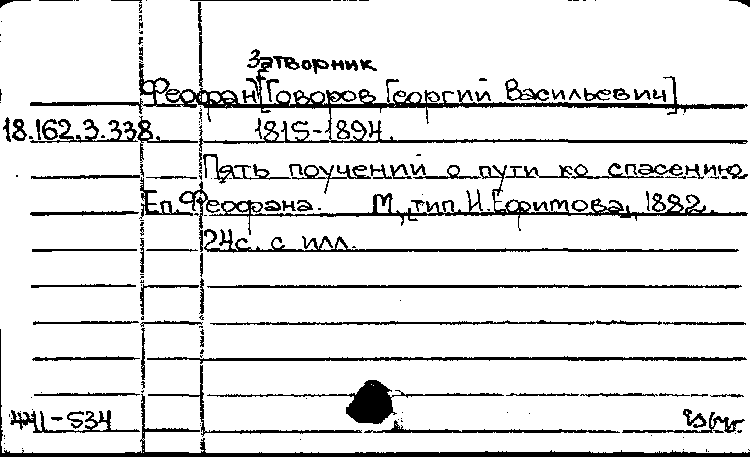 Затворник
Феофан [Говоров Георгий Васильевич],
18.162.3.338. 1815-1894.
Пять поучений о пути ко спасению
Еп. Феофана. М., тип. И. Ефимова, 1882.
24с. с илл.
441-534